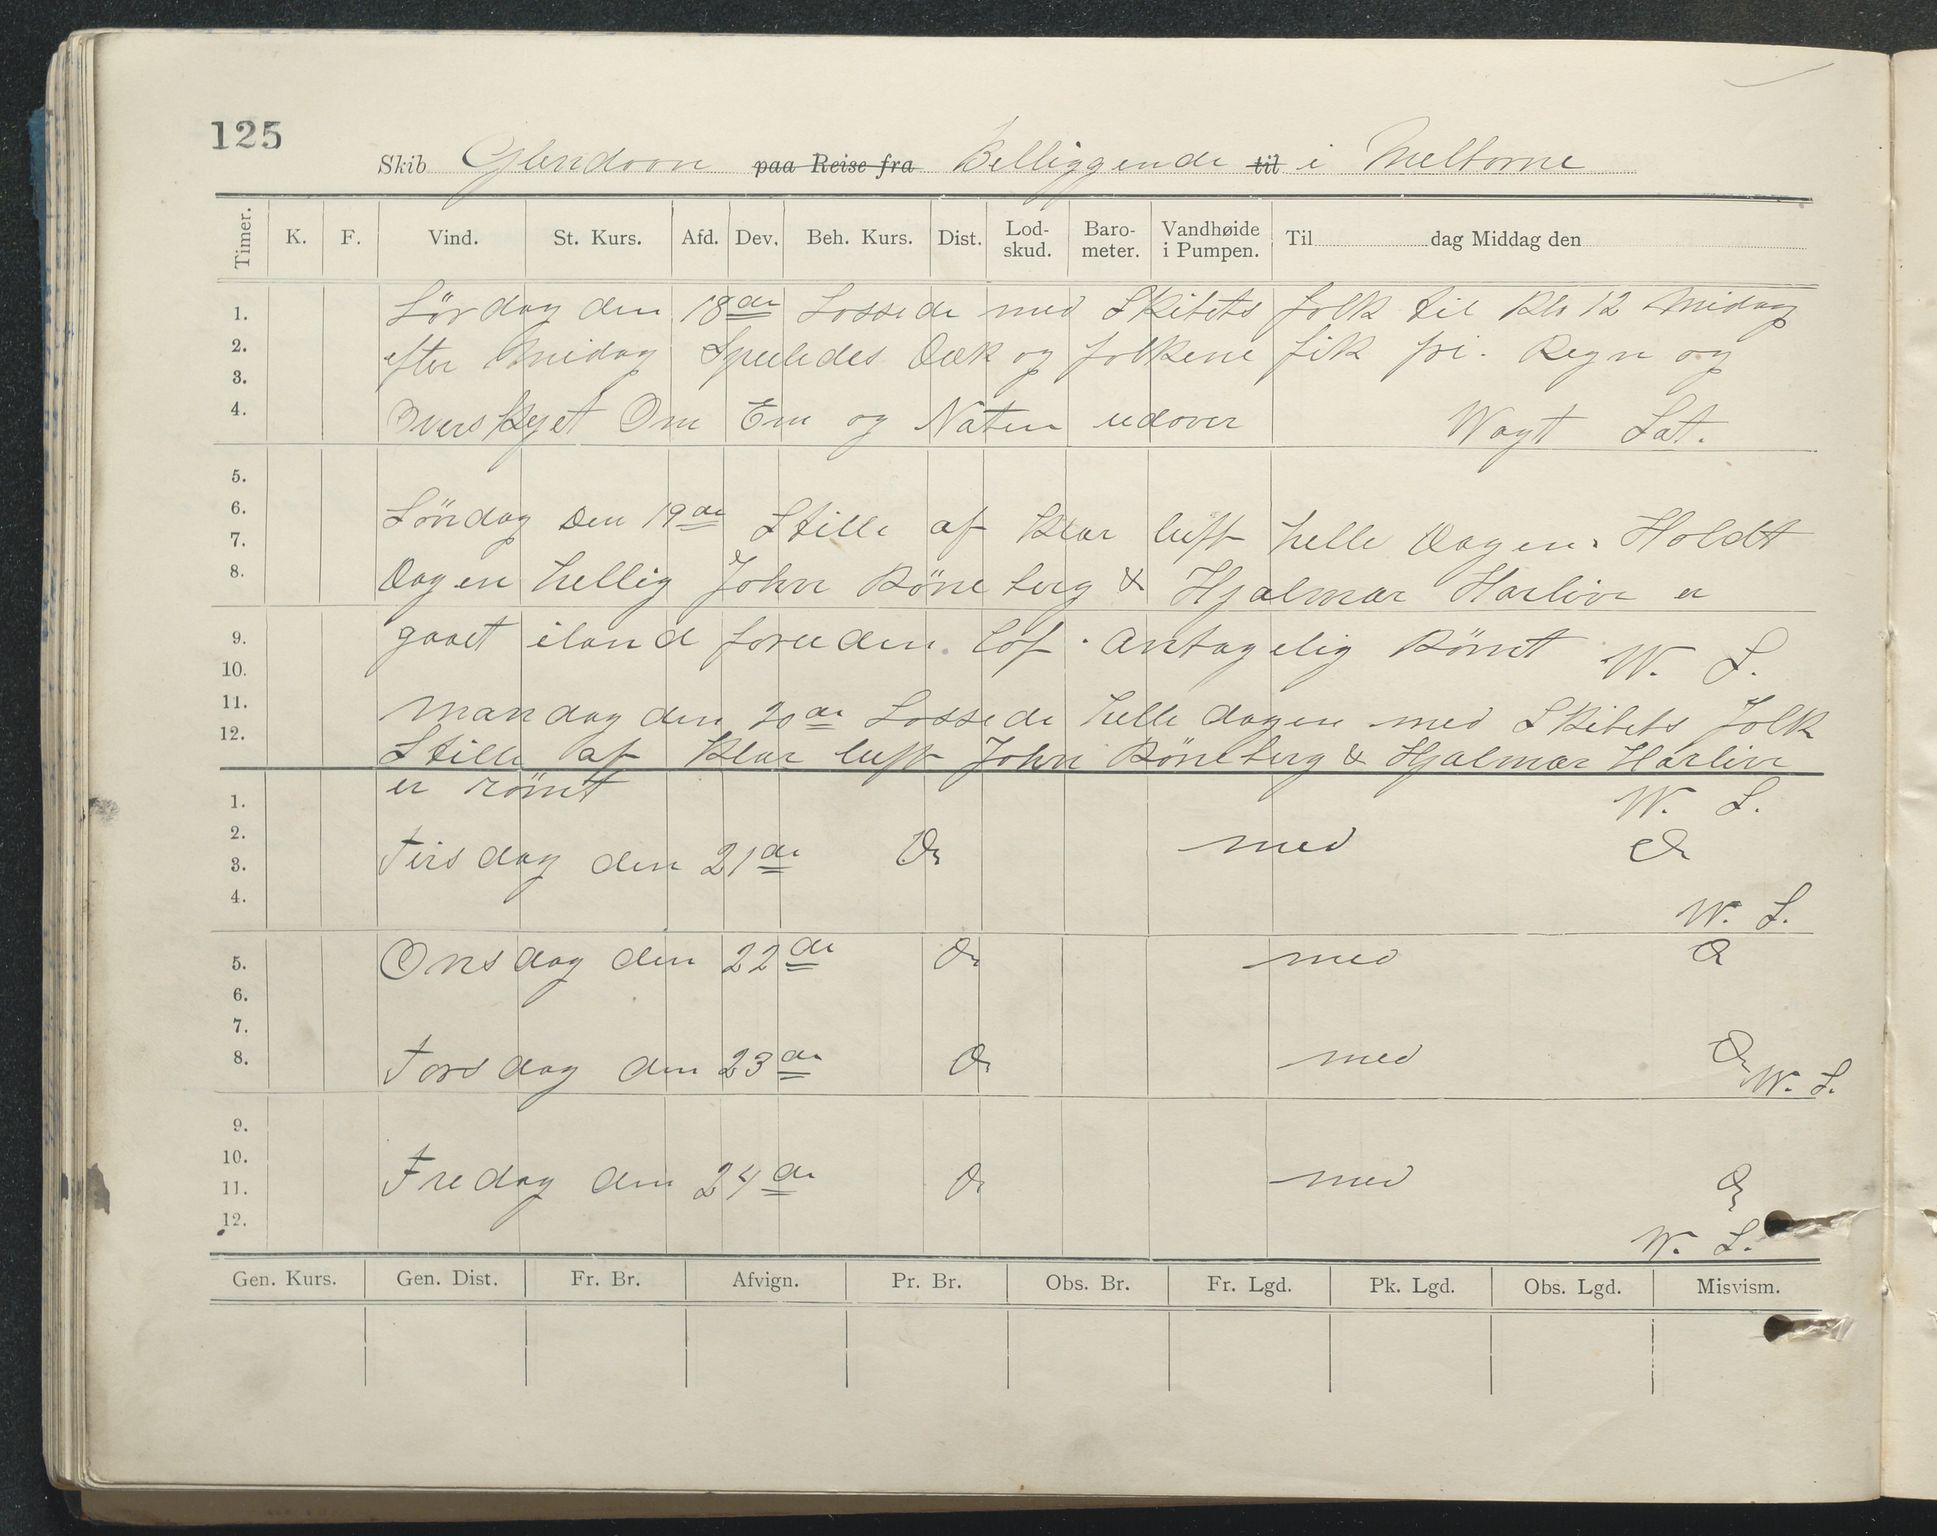 125
Skib Glendoon paa Reise fra Belliggende til i Melborne
Timer. K. F. Vind. St. Kurs. Afd. Dev. Beh. Kurs. Dist. Lod-skud. Baro-meter. Vandhøide i Pumpen. Til dag Middag den
1. Lördag den 18de Lossede med Skibets folk til Kl 12 Midag
2. efter Midag Spuledes Dæk og folkene fik fri. Regn og
3.
4. Overskyet Om Em og Naten udover Wagt Lat.
5.
6. Söndag Den 19de Stille af Klar luft helle Dagen. Holdt
7.
8. Dagen hellig John Röneberg & Hjalmar Harlin er
9. gaaet iland foruden lof. Antagelig Römt W. L.
10.
11. Mandag den 20de Lossede helle dagen med Skibets Folk
12. Stille af Klar luft John Röneberg & Hjalmar Harlin
1. er römt W. L.
2.
3. Tirsdag den 21de Do med Do
4. W. L.
5. Onsdag den 22de Do med Do
6.
7.
8. Torsdag den 23de Do med Do W. L.
9.
10.
11. Fredag den 24de Do med Do
12. W. L.
Gen. Kurs. Gen. Dist. Fr. Br. Afvign. Pr. Br. Obs. Br. Fr. Lgd. Pk. Lgd. Obs. Lgd. Misvism.